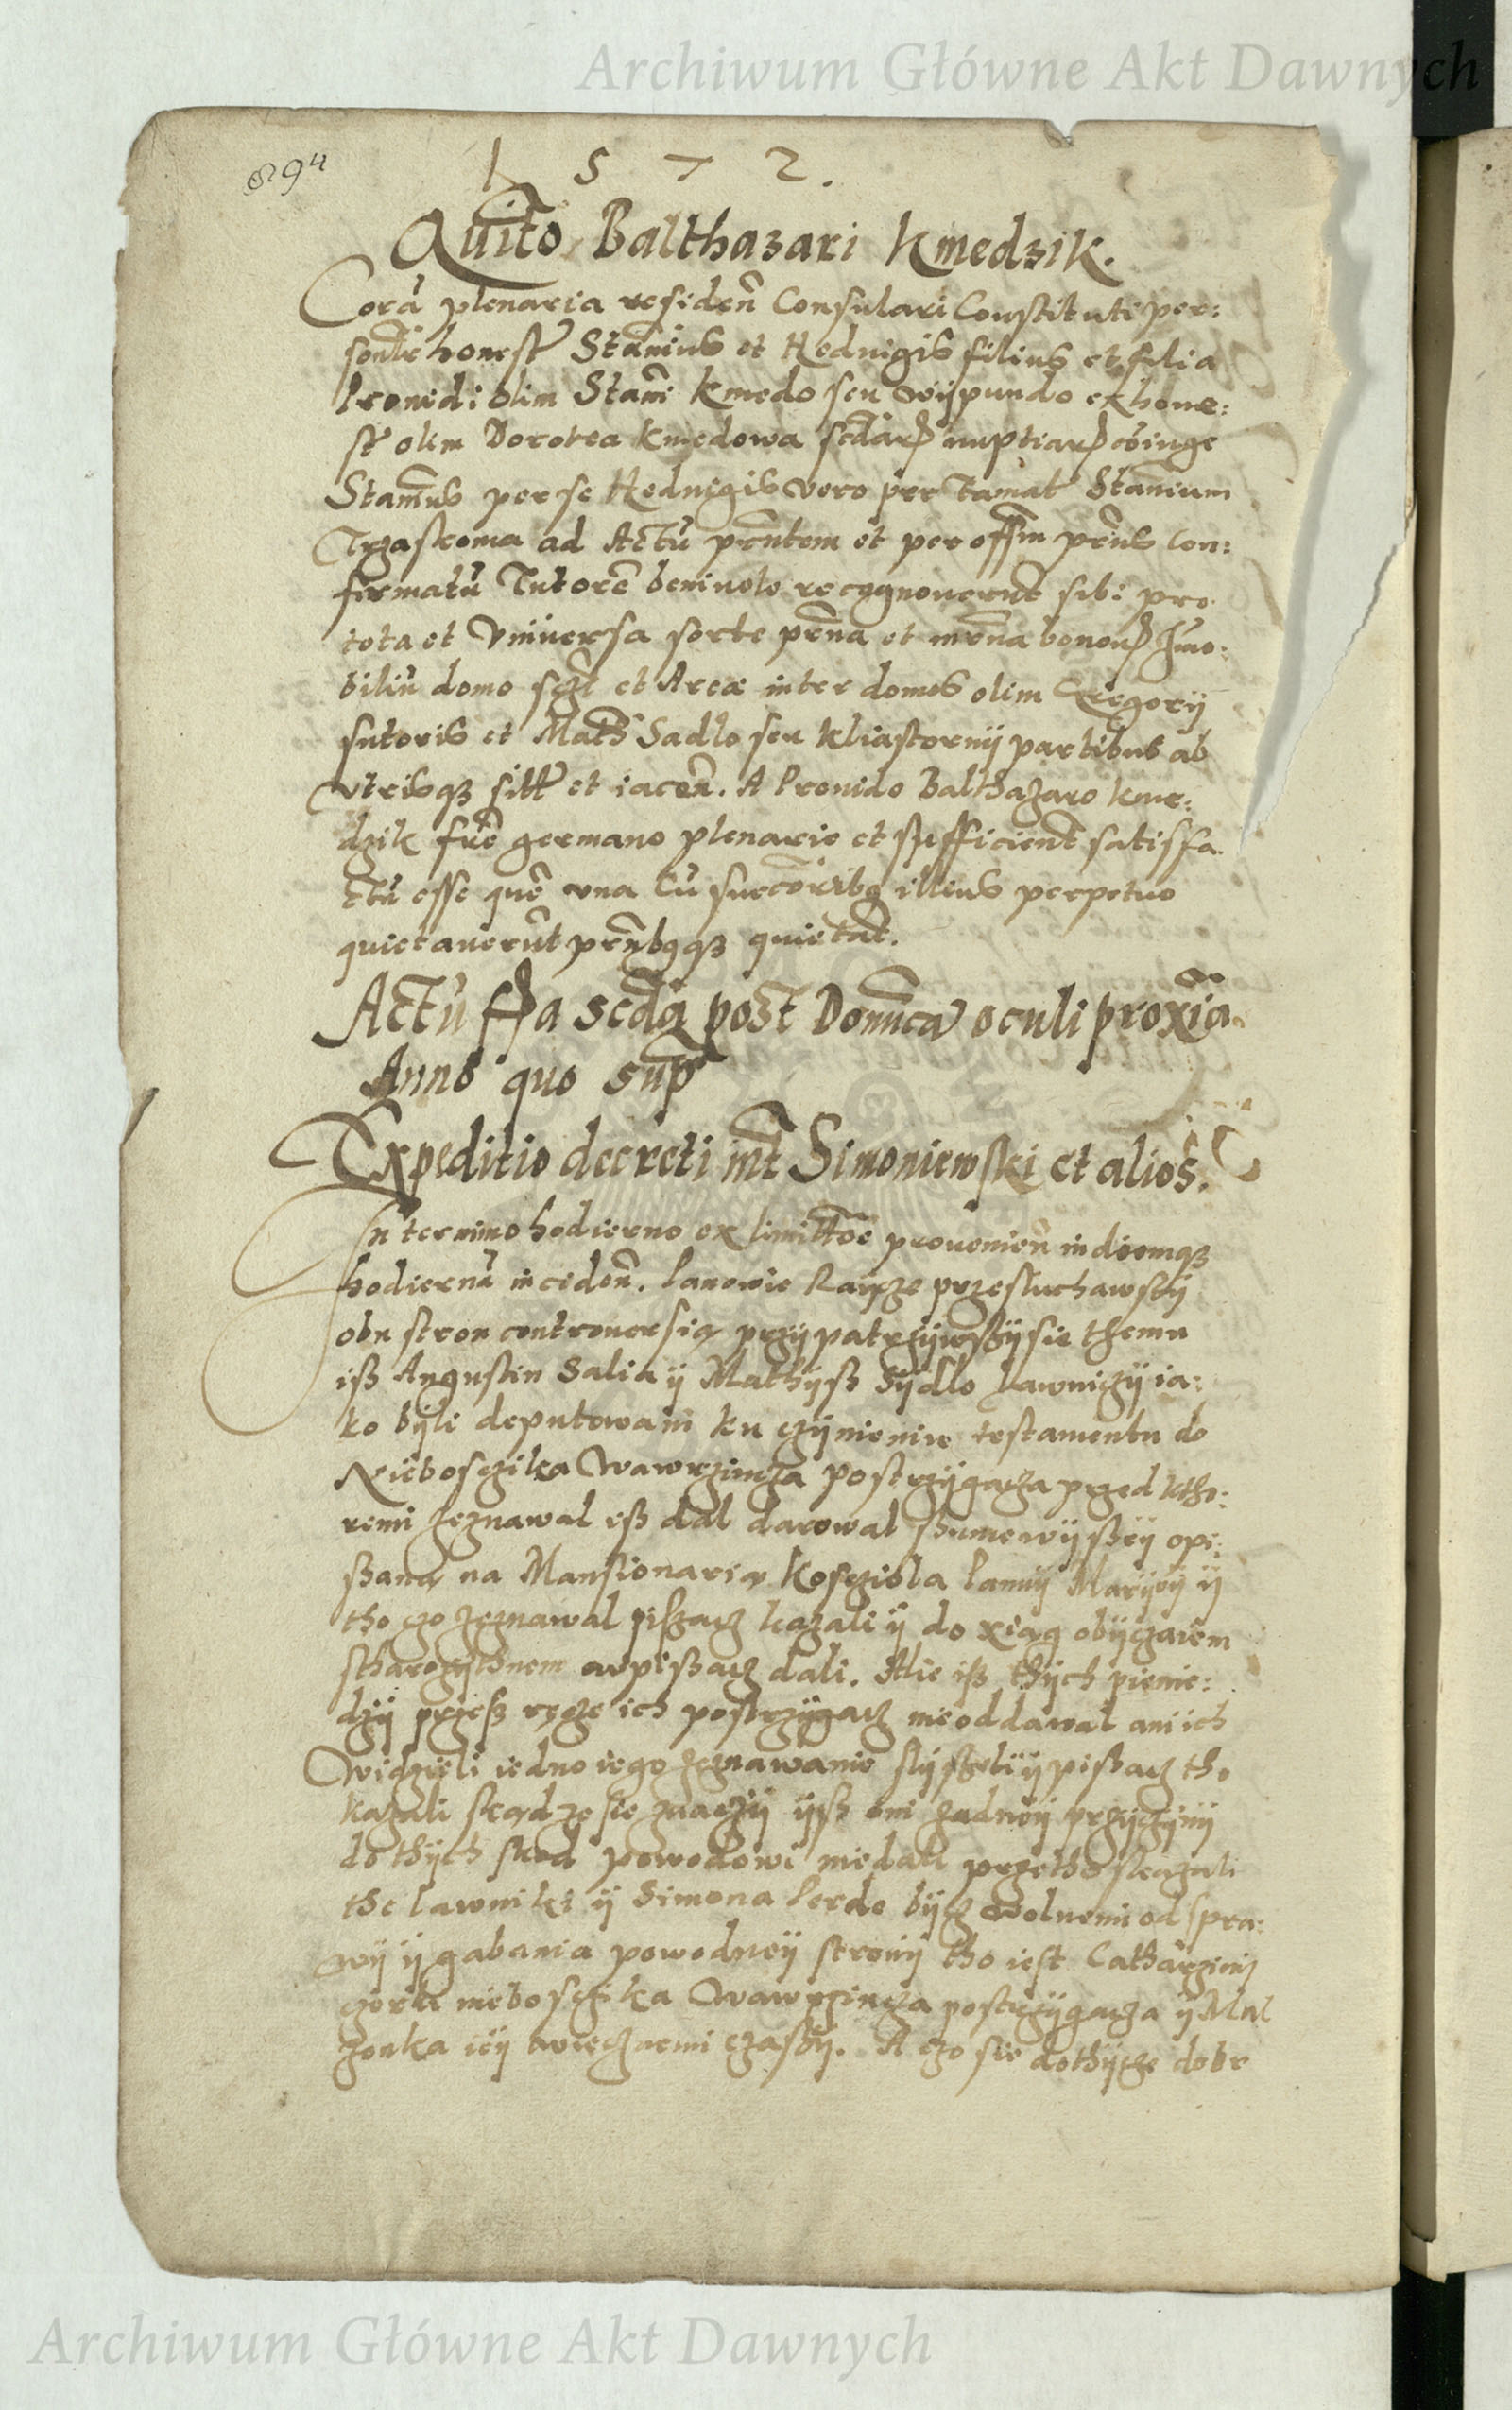 Archiwum Główne Akt Dawnych
894
1 5 7 2.
Quito Balthazari Kmedzik.
Corã plenaria residen̄ Consulari Constituti per:
honest Stanius et Hednigis filius et filia
Prouidi olim Stani Kmedo seu Wÿpundo ex hone:
st olim Dorotea Kmedowa nuptiar
Stanius per se Hednigis vero per Stanium
ad Actū prn̄tem et per offm̄ prn̄s con:
firmatū Tutorē beniuole recognouerunt sibi pro
tota et Vniuersa sorte prna et mrna bonor Imo:
biliū domo et Areæ inter domos olim Gregorÿ
sutoris et Math Sadlo seu Kliastornÿ partibus ab
vtrisqz sitt et iacen̄. A Prouido Balthazaro Kme:
dzik frē germano plenarie et sufficient satisfa
ctū esse quē vna cū succoribq illius perpetuo
quietauerūt prn̄bqqz quietāt.
Actū fria scda post Domnca oculi proxīa.
Anno quo supra
Expeditio decreti int Simoniewski et alios.
In termino hodierno ex limittōe prouenien̄ in diemqz
hodiernū inciden̄. Panowie Raÿcze przesluchawssÿ
obu stron controuersią przÿpatrzÿwssÿ sie themu
iß Augustin Salia ÿ Mathÿß Sÿdlo Lawniczÿ ia:
ko bÿli deputowani ku czÿnieniu testamentu do
Nieboszczika Wawrzincza Postrzÿgacza przed ktho:
remi zeznawal iß dal darowal ßumę wÿßÿ opi:
ßaną na Mansionarią Kosciola Pannÿ Marÿeÿ ÿ
tho czo zeznawal pißacz kazali ÿ do xiąg obÿczaiem
starozÿthnem wpißacz dali. Alie iß thÿch pienie:
dzÿ przeß ręcze ich postrzÿgacz nieoddawal ani ich
Widzieli iedno iego zeznawanie slÿszeli ÿ pißacz tho
kazali skąd ze sie znaczÿ ÿß oni zadneÿ przÿczÿnÿ
do thÿch powodowi niedali przetho skazali
the lawniki ÿ Simona Perdo bÿcz wolnemi od spra:
wÿ ÿ gabania powodneÿ stronÿ tho iest Catharzinÿ
czorki nieboszczika Wawrzincza postrzÿgacza ÿ Mal
zonka ieÿ wiecznemi czassÿ. A czo sie dothÿcze dobr
Archiwum Główne Akt Dawnych